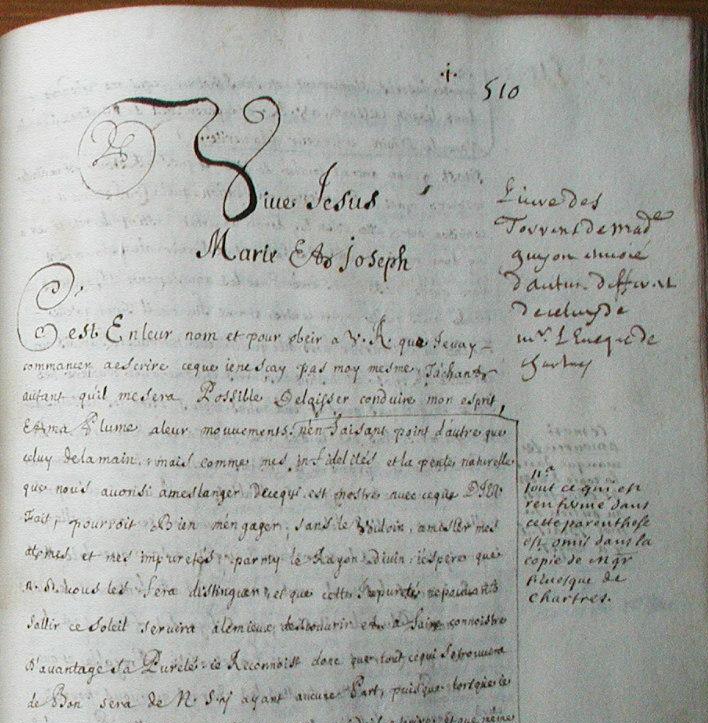 510
Vive Jesus
Marie Et Joseph
C'est En leur nom et pour obeir a V. R. que Jevay
commancer aescrire ceque jenesçay pas moy mesme Tachant
autant qu'il mesera Possible Delaisser conduire mon esprit,
Et ma Plume aleur mouvements, n'en faisant point d'autre que
celuy delamain. mais comme mes infidelités et la pente naturelle
que nous avons ameslanger decequi est nostre avec ceque DIEU
fait, pourroit Bien m'engager, sans le vouloir, amesler mes
et mes impuretés, parmy le Rayon divin, j'espere que
vous les sera distinguer, et que cette Impureté nepouvant
sallir ce Soleil servira alemieux et a faire connoistre
D'avantage sa Pureté. ie Reconnoist donc que tout cequi Setrouvera
de Bon sera de N. ayant aucune Part, puisque lorsque ie
Livre des
Torrens de mad^e
guyon envoié
d'autun. different
de celuy de
m^r. L'Eveque de
chartres
n^a
tout ce qui est
renfermé dans
cette parenthese
est omis dans la
copie de m^gr
Eveque de
Chartres.